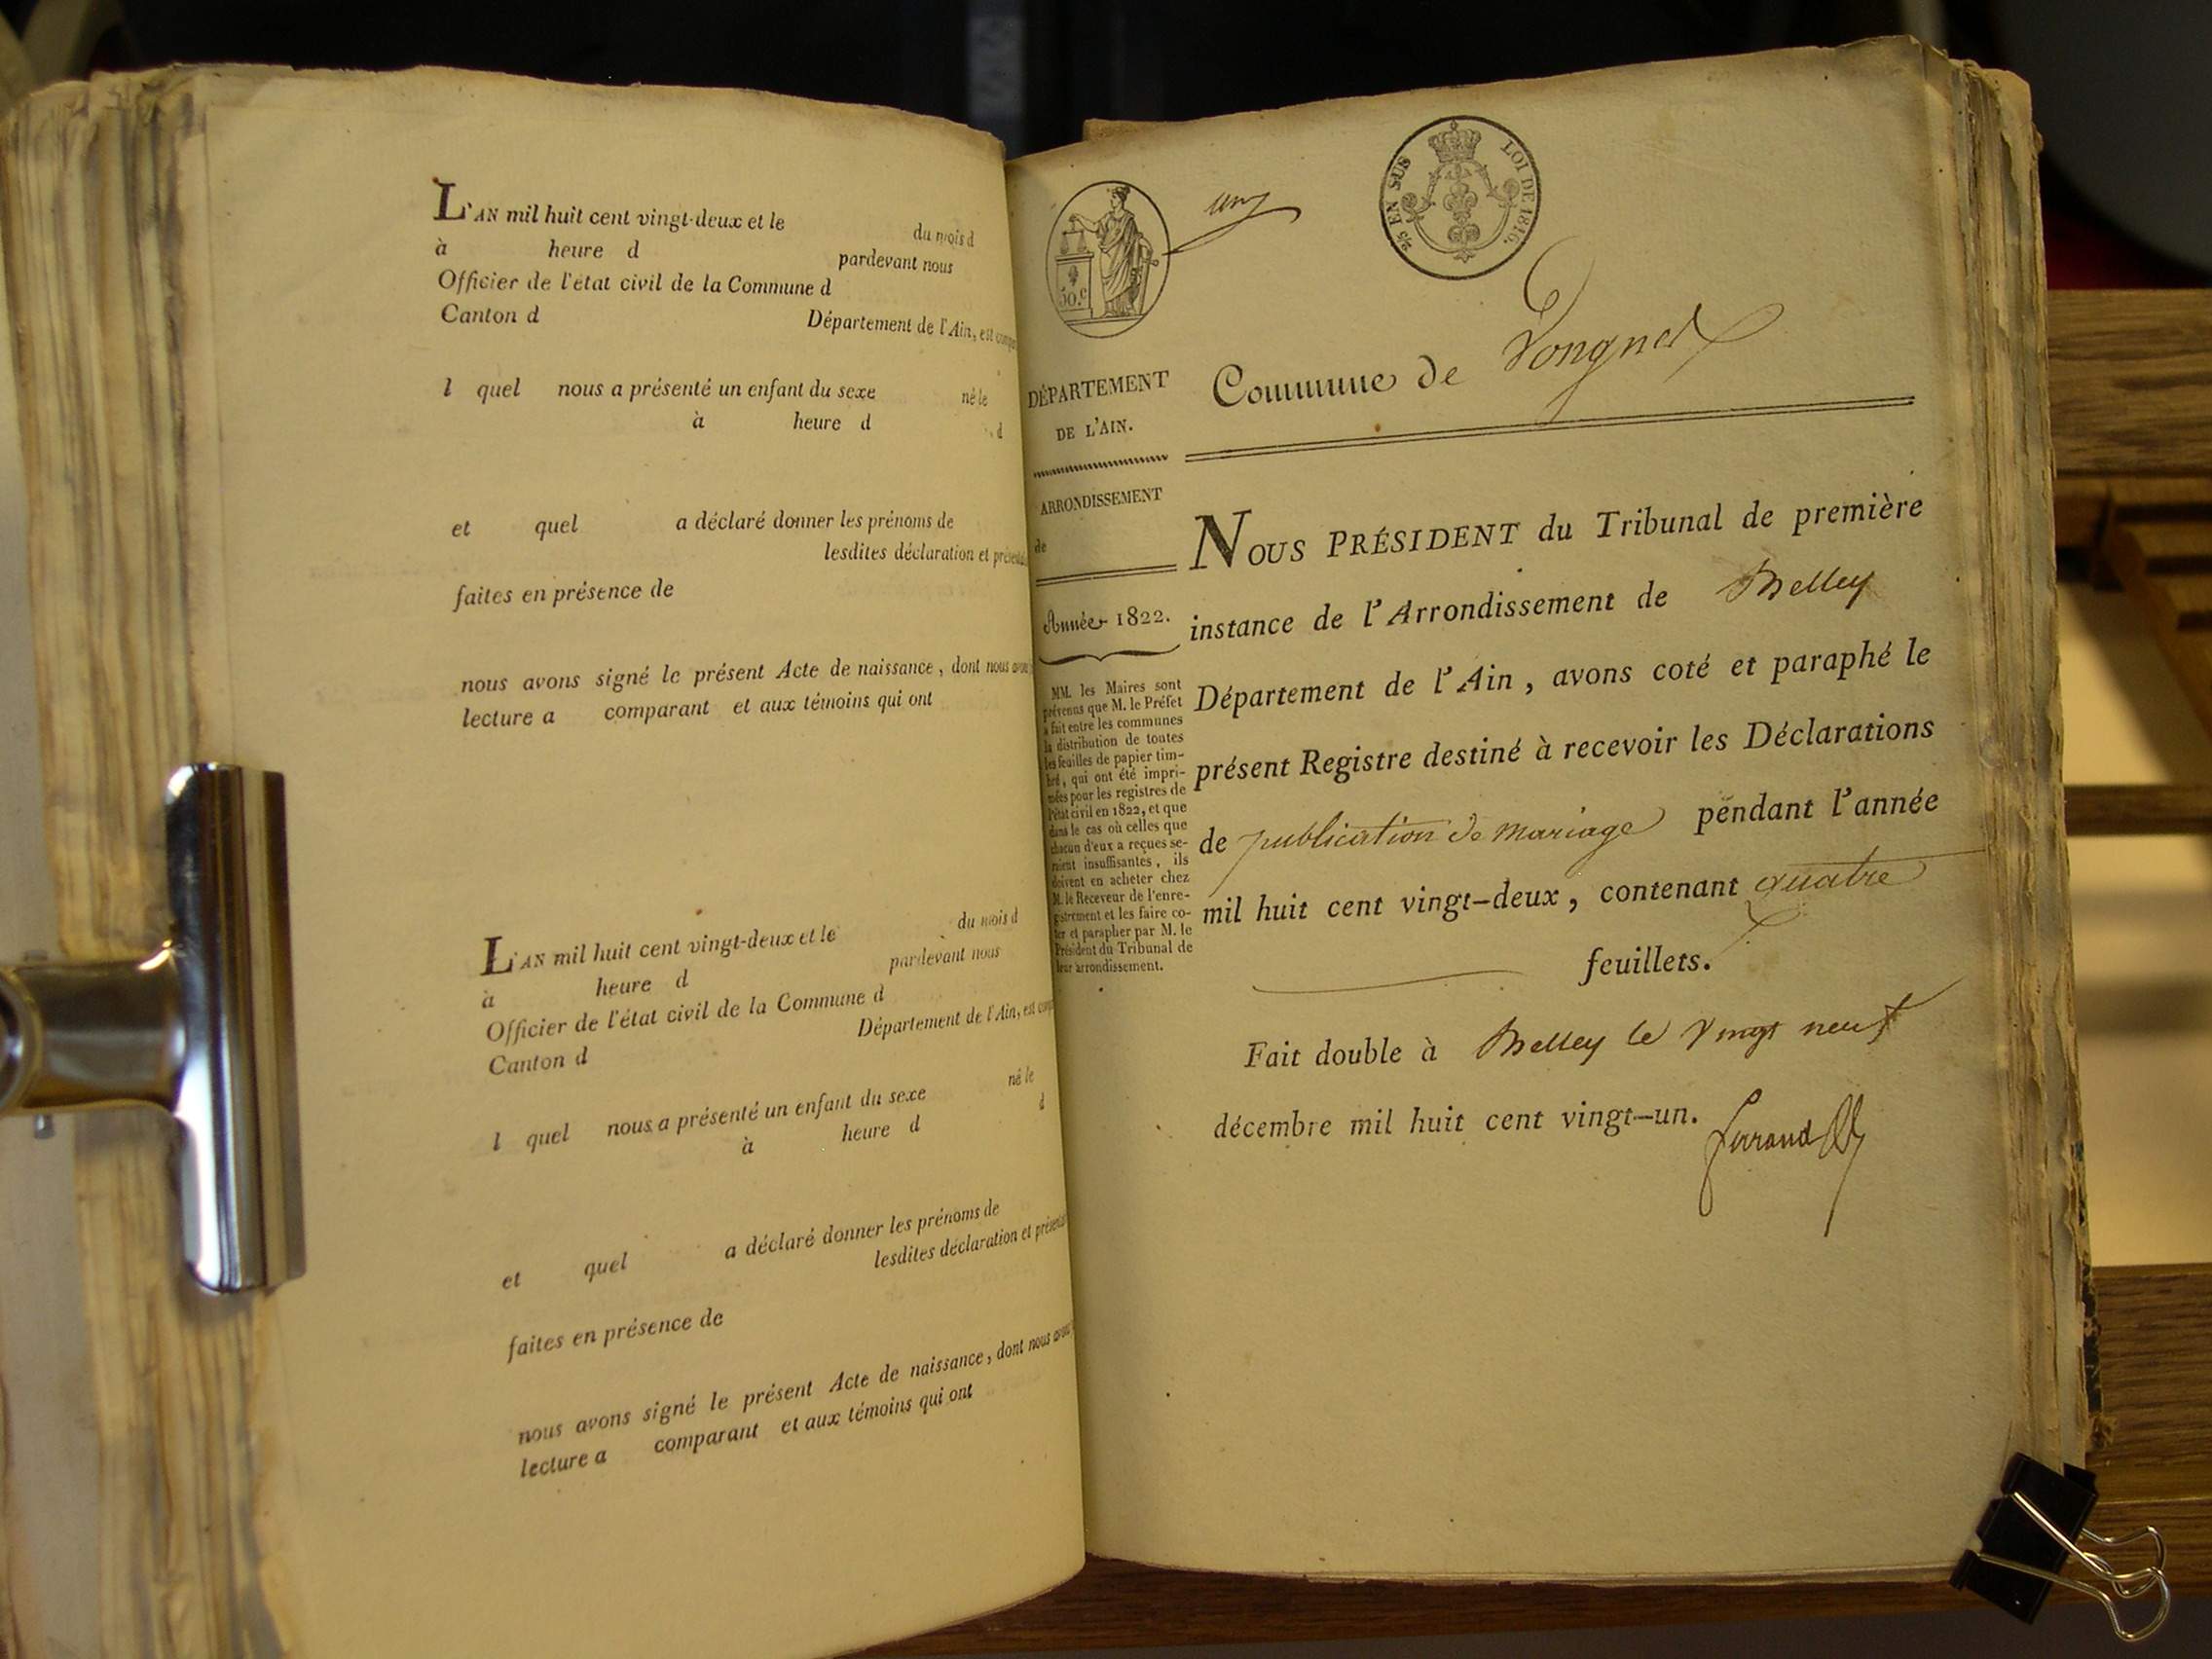 L'AN mil huit cent vingt-deux et le du mois d
à heure d pardevant nous
Officier de l'état civil de la Commune d
Canton d Département de l'Ain, est
l quel nous a présenté un enfant du sexe né le
à heure d d
et quel a déclaré donner les prénoms de
lesdites déclaration et
faites en présence de
nous avons signé le présent Acte de naissance, dont nous
lecture a comparant et aux témoins qui ont
L'AN mil huit cent vingt-deux et le du mois d
à heure d pardevant nous
Officier de l'état civil de la Commune d
Canton d Département de l'Ain, est
l quel nous a présenté un enfant du sexe né le
à heure d d
et quel a déclaré donner les prénoms de
lesdites déclaration et
faites en présence de
nous avons signé le présent Acte de naissance, dont nous
lecture a comparant et aux témoins qui ont
50.c
un
2/5 EN SUS LOI DE 1816.
Commune de Vongnes
DÉPARTEMENT
DE L'AIN.
ARRONDISSEMENT
de
Année 1822.
MM. les Maires sont
prévenus que M. le Préfet
a fait entre les communes
la distribution de toutes
les feuilles de papier tim-
bré, qui ont été impri-
mées pour les registres de
l'état civil en 1822, et que
dans le cas où celles que
chacun d'eux a reçues se-
raient insuffisantes, ils
doivent en acheter chez
M. le Receveur de l'enre-
gistrement et les faire co-
ter et parapher par M. le
Président du Tribunal de
leur arrondissement.
NOUS PRÉSIDENT du Tribunal de première
instance de l'Arrondissement de Belley
Département de l'Ain, avons coté et paraphé le
présent Registre destiné à recevoir les Déclarations
de publication de mariage pendant l'année
mil huit cent vingt-deux, contenant quatre
feuillets.
Fait double à Belley le vingt neuf
décembre mil huit cent vingt-un.